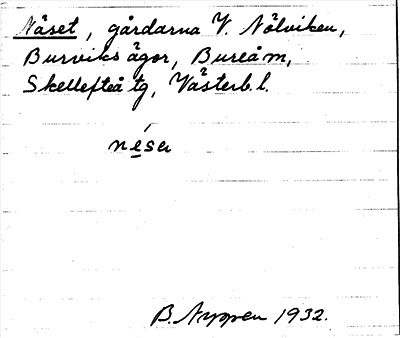 Näset, gårdarna V. Nölviken,
Burviks ägor, Bureå m,
Skellefteå tg, Västerb. l.
nésa
B. Nyppen 1932.